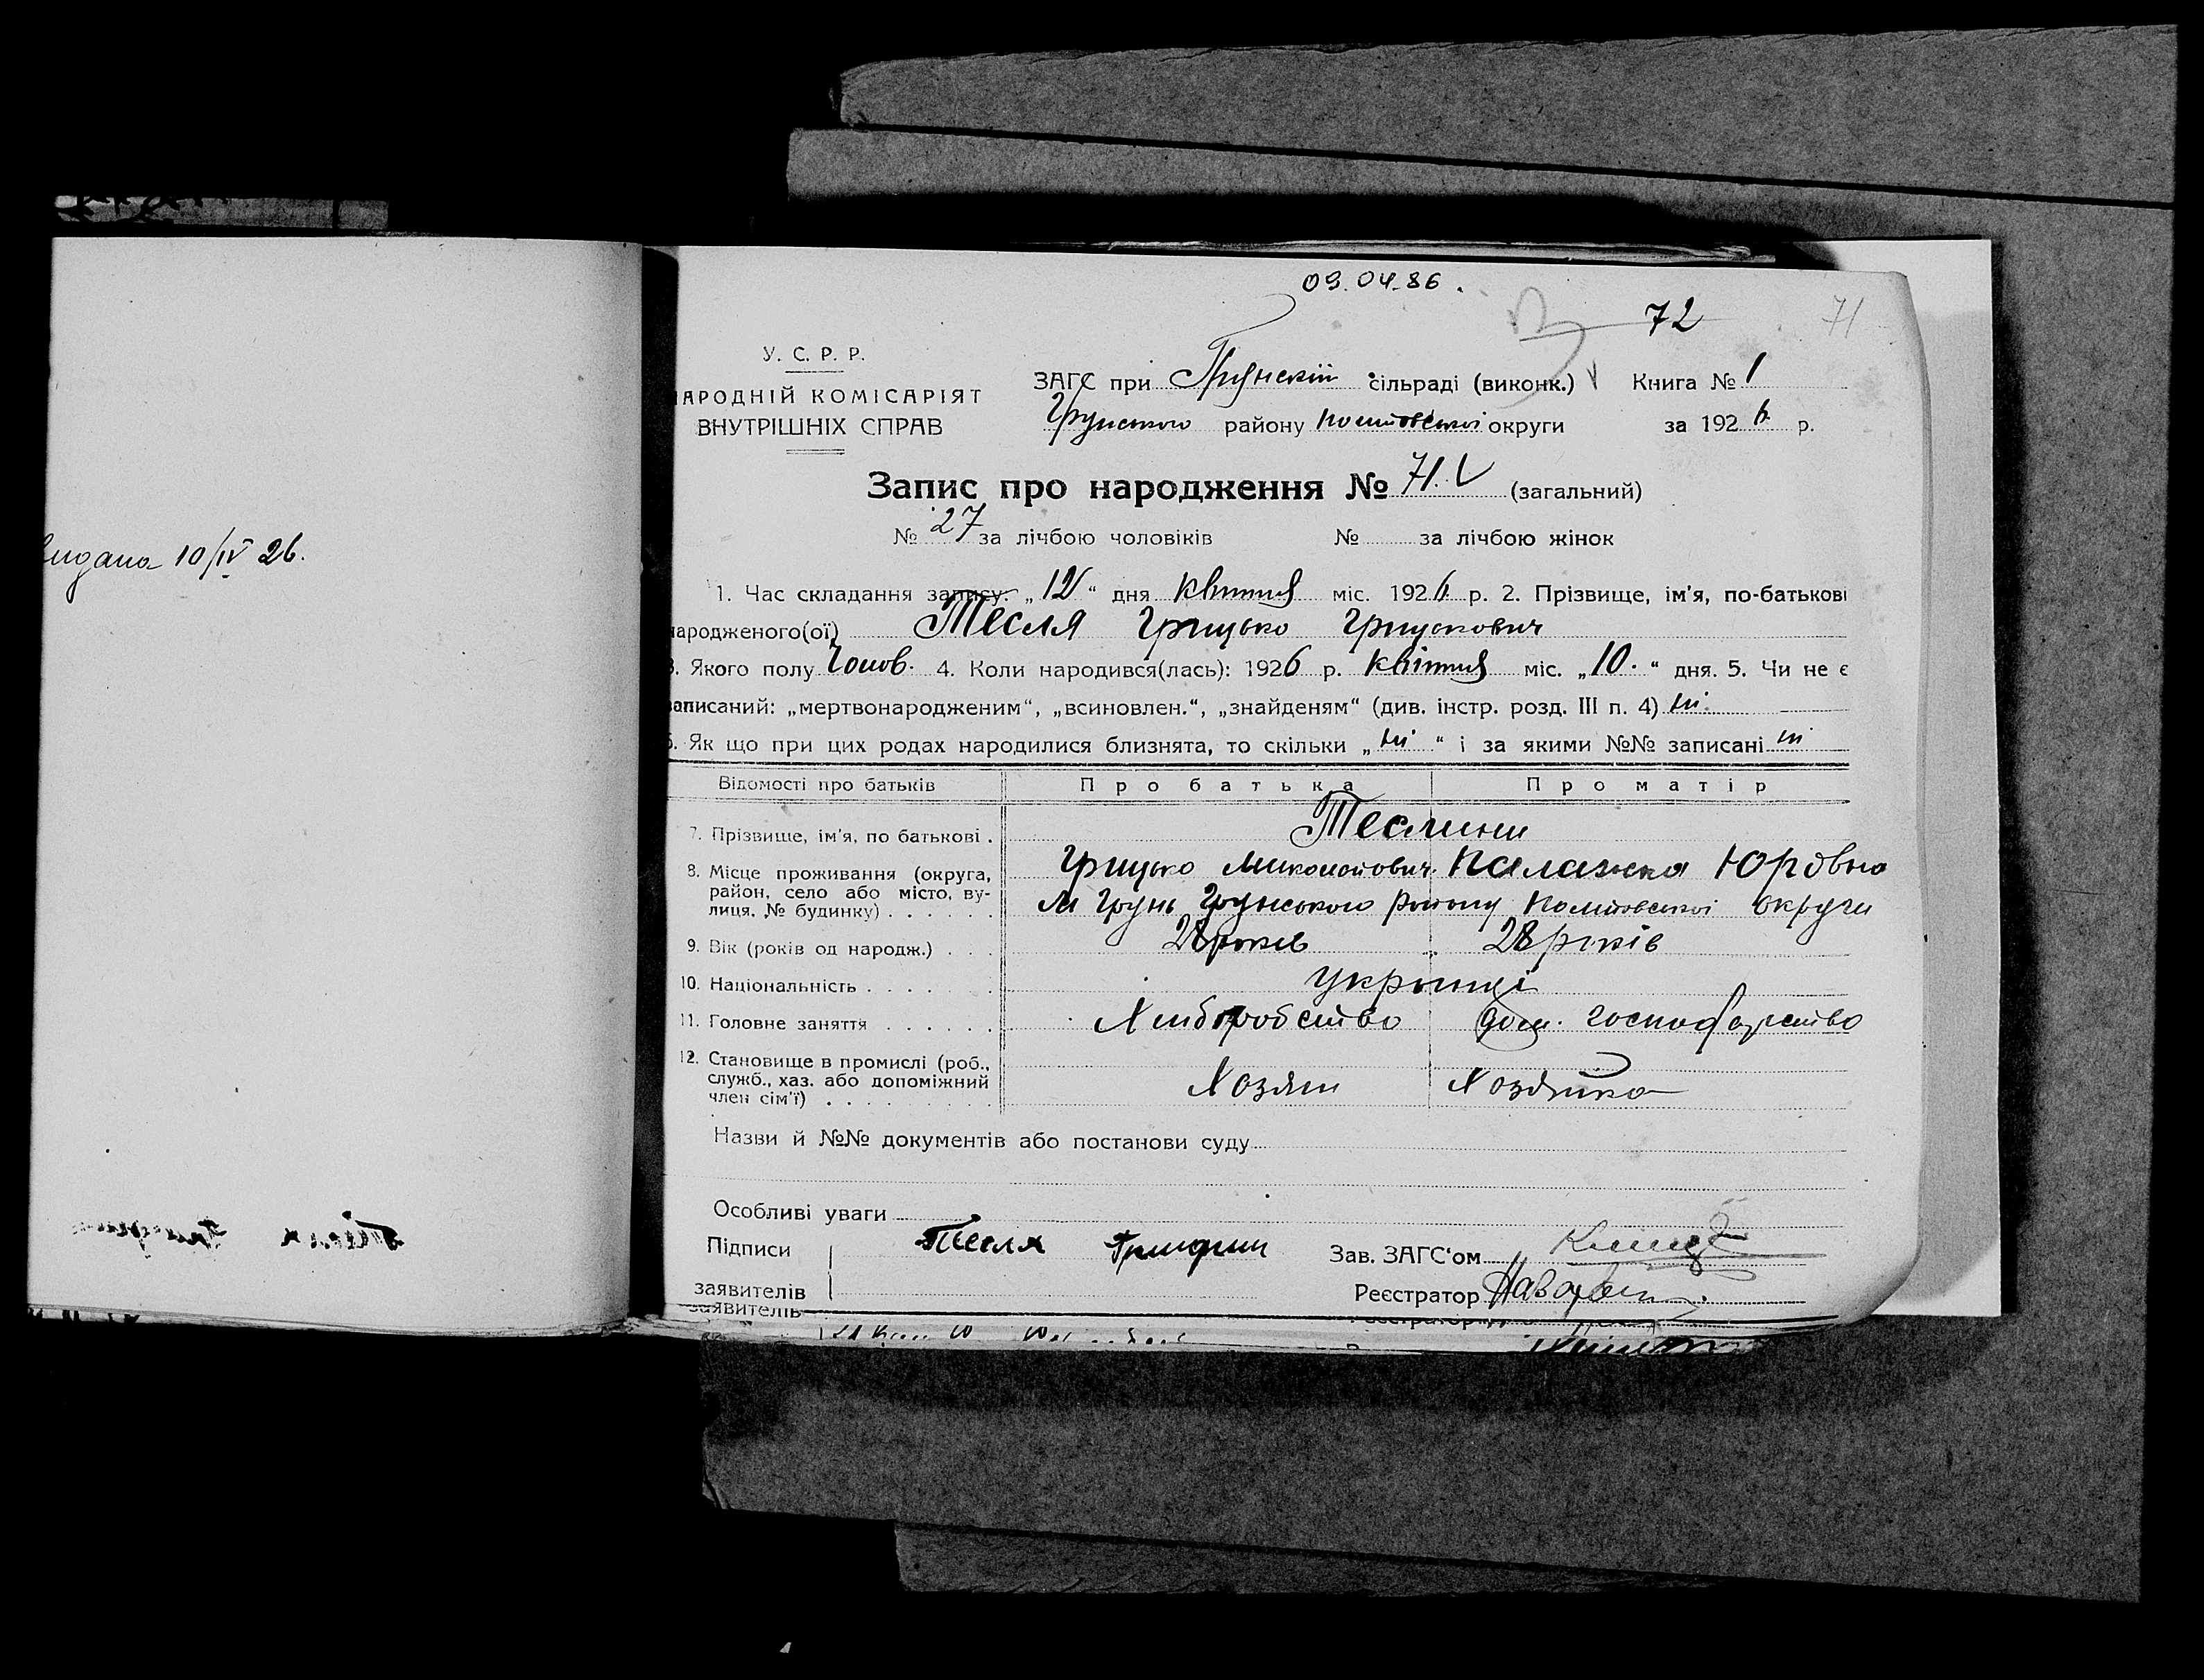 видана 10/IV 26.
09.04.86.
72 71
У. С. Р. Р.
АРОДНІЙ КОМІСАРІЯТ
ВНУТРІШНІХ СПРАВ
ЗАГС при Грунскій сільраді (виконк.) Книга № 1
Грунського району Полтавської округи за 1926 р.
Запис про народження № 71. (загальний)
№ 27 за лічбою чоловіків № за лічбою жінок
1. Час складання запису: „12“ дня квітня міс. 1926 р. 2. Прізвище, ім'я, по-батькові
народженого(ої) Тесля Грицько Грицькович
3. Якого полу Чолов. 4. Коли народився(лась): 1926 р. квітня міс. „10.“ дня. 5. Чи не є
записаний: „мертвонародженим“, „всиновлен.“, „знайденям“ (див. інстр. розд. III п. 4) ні.
6. Як що при цих родах народилися близнята, то скільки „ні“ і за якими №№ записані ні
Відомості про батьків Про батька Про матір
7. Прізвище, ім'я, по батькові . Теслини
Грицько Миколайович Палажка Юровна
8. Місце проживання (округа, район, село або місто, вулиця, № будинку) . . . . . . М Грунь Грунського району Полтавської округи
9. Вік (років од народж.) . . . 28 років 28 років
10. Національність . . . . . . українці
11. Головне заняття . . . . . . Хліборобство Дом. господарство
12. Становище в промислі (роб., служб., хаз. або допоміжний член сім'ї) . . . . . . . . Хозяїн Хозяйка
Назви й №№ документів або постанови суду
Особливі уваги
Підписи Тесля Зав. ЗАГС'ом
заявителів Реєстратор
заявителів